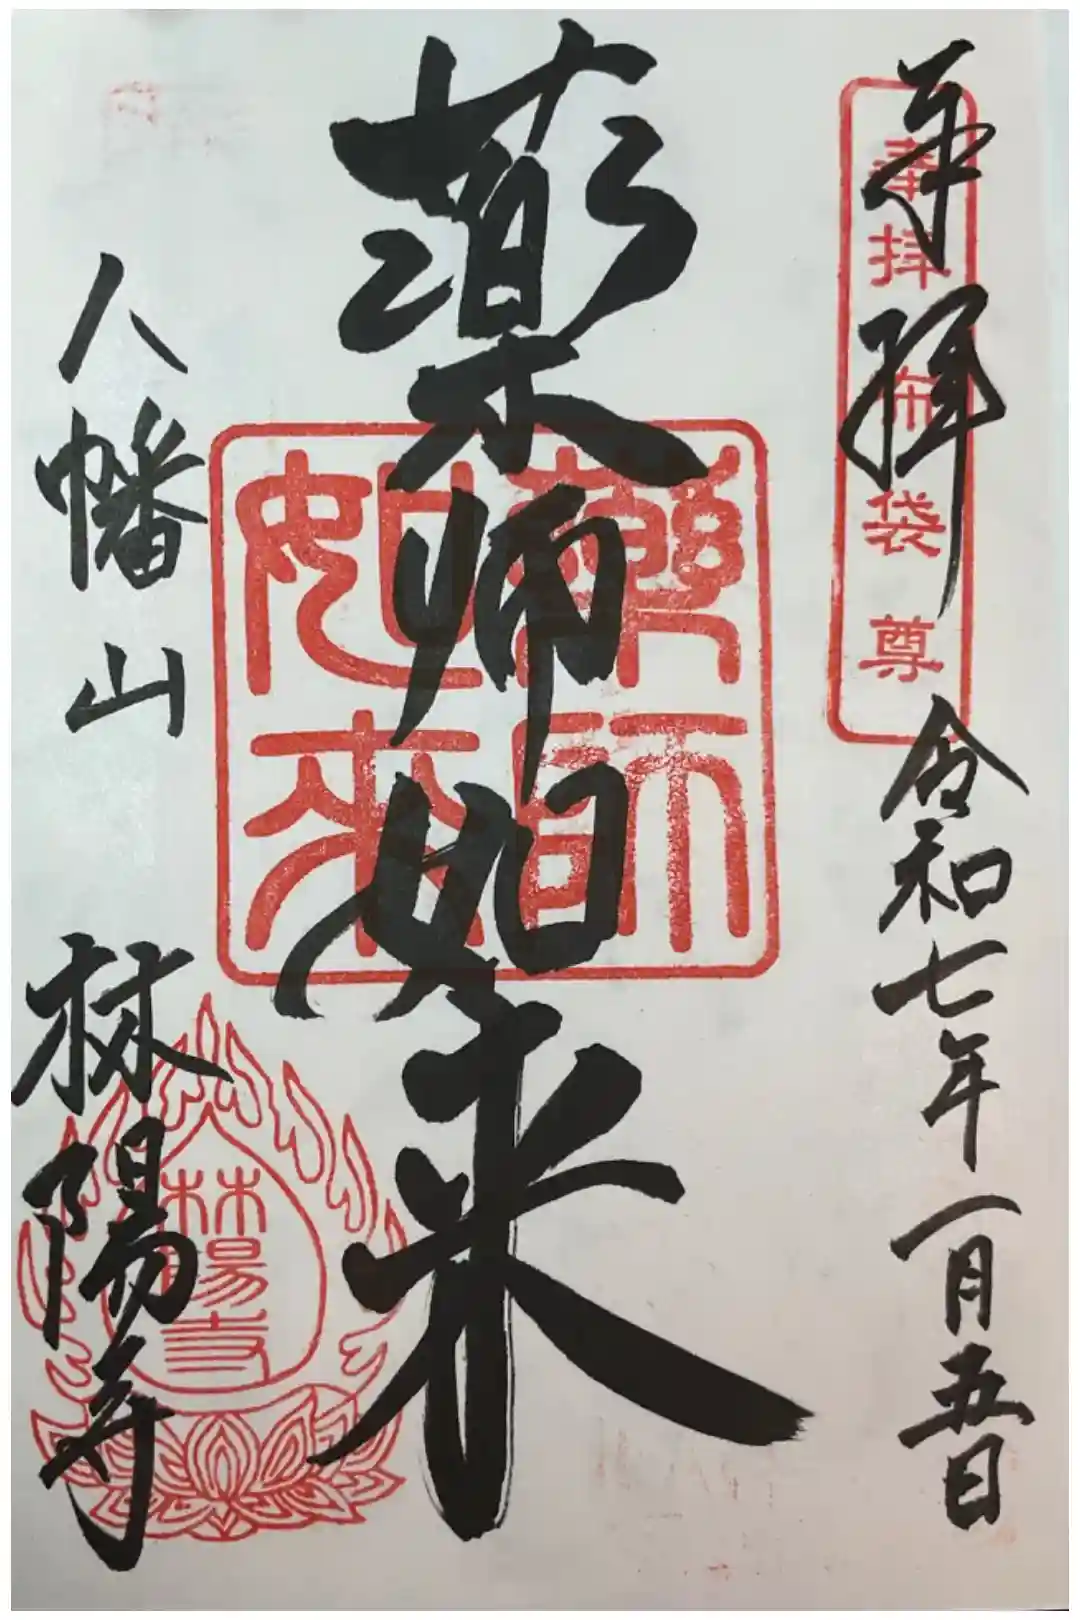 奉拝
令和七年一月五日
奉拝布袋尊
薬師如来
藥師
如來
八幡山
林陽寺
林陽寺